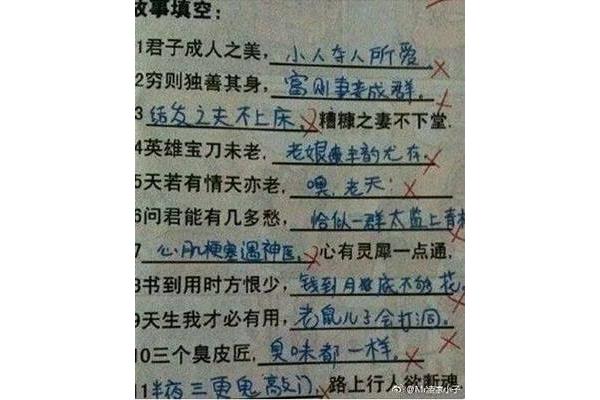 故事填空:
1君子成人之美,小人夺人所爱.
2穷则独善其身,富则妻妾成群.
3结发之夫不上床,糟糠之妻不下堂.
4英雄宝刀未老,老娘丰韵尤存
5天若有情天亦老,噢,老天
6问君能有几多愁,恰似一群太监上青楼
7心肌梗塞遇神医,心有灵犀一点通,
8书到用时方恨少,钱到月底不够花
9天生我才必有用,老鼠儿子会打洞.
10三个臭皮匠,臭味都一样.
11半夜三更鬼敲门,路上行人欲断魂
@Mr凌凉小子